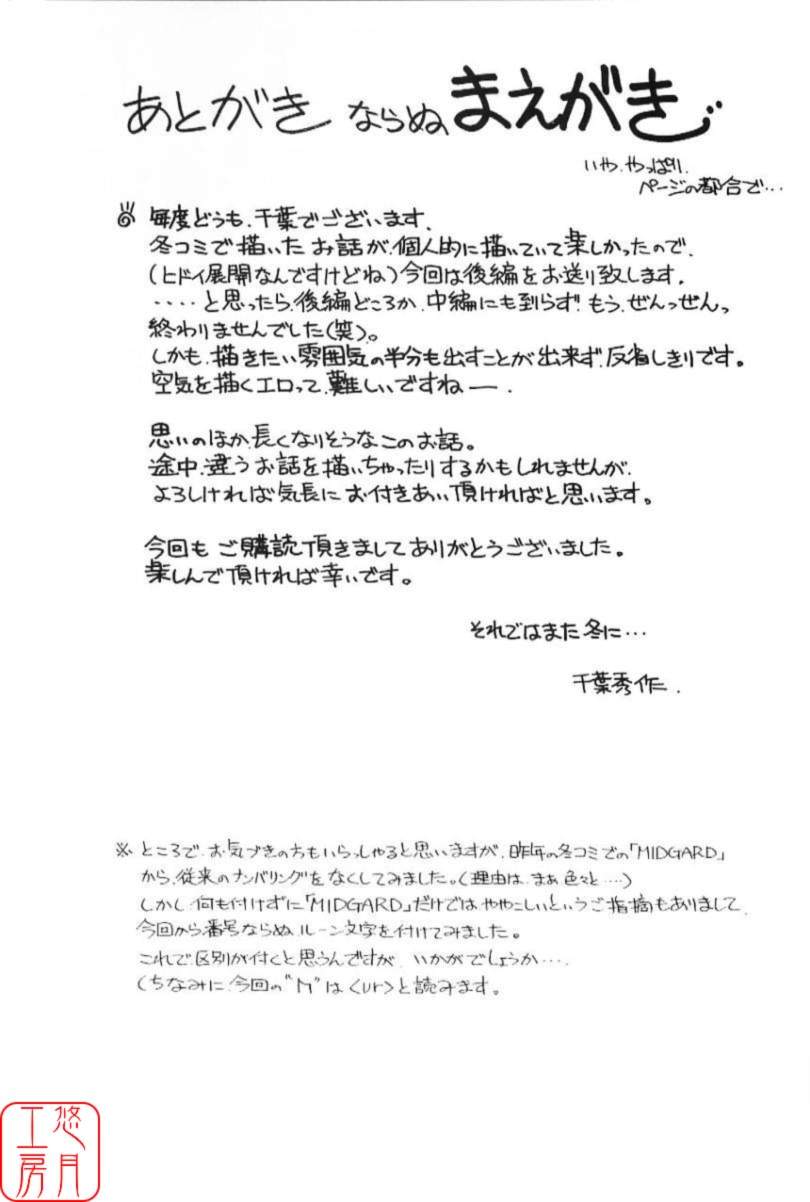 あとがき ならぬ、まえがき
いや、やっぱり、
ページの都合で…
毎度どうも、千葉でございます、
冬コミで描いたお話が、個人的に描いていて楽しかったので、
(ヒドイ展開なんですけどね)今回は後編をお送り致します、
‥‥と思ったら、後編どころか、中編にも到らず、もう、ぜんっぜんっ
終わりませんでした(笑)。
しかも、描きたい雰囲気の半分も出すことが出来ず、反省しきりです。
空気を描くエロって、難しいですねー、
思いのほか、長くなりそうなこのお話。
途中、違うお話を描いちゃったりするかもしれませんが、
よろしければ気長にお付きあい頂ければと思います。
今回もご購読頂きましてありがとうございました。
楽しんで頂ければ幸いです。
それではまた冬に…
千葉秀作、
※ところで、お気づきの方もいらっしゃると思いますが、昨年の冬コミでの「MIDGARD」
から、従来のナンバリングをなくしてみました。(理由は、まぁ色々と‥‥)
しかし、何も付けずに「MIDGARD」だけでは、ややこしいというご指摘もありまして、
今回から番号ならぬ、ルーン文字を付けてみました。
これで、区別が付くと思うんですが、いかがでしょうか‥‥
(ちなみに、今回の"ᚢ"は<ur>と読みます。
悠月工房